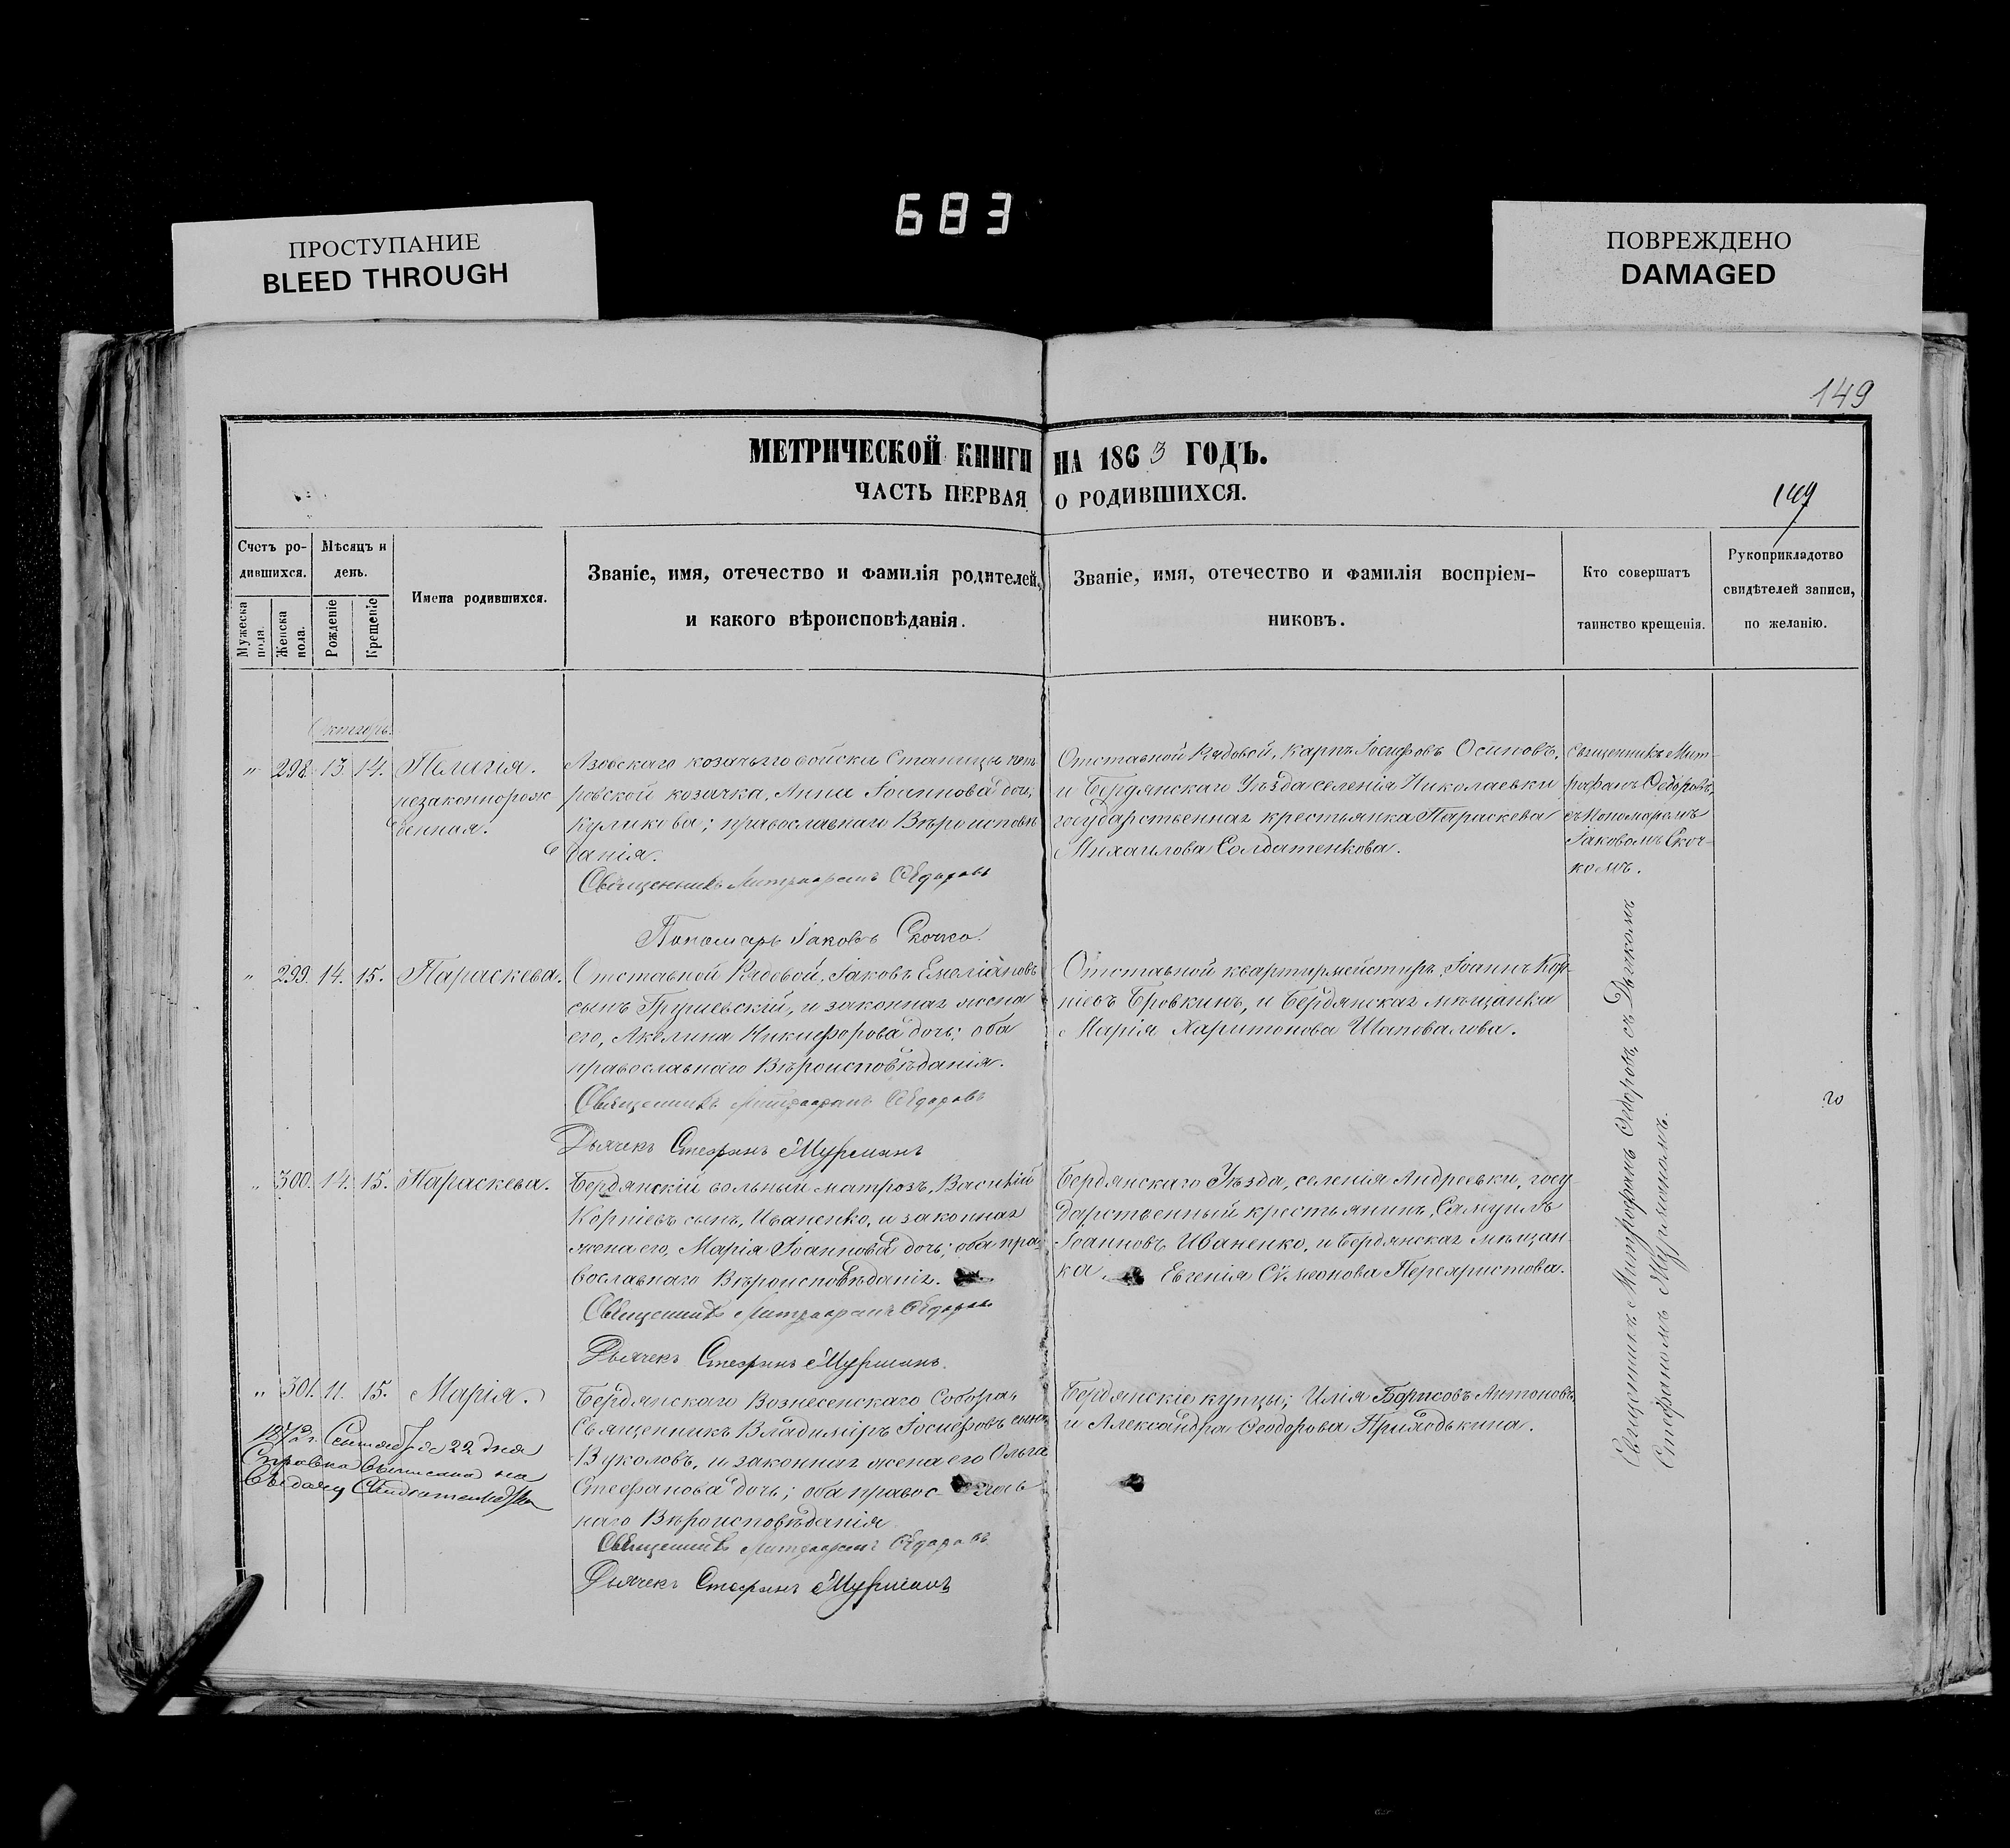 683
ПРОСТУПАНИЕ
BLEED THROUGH
ПОВРЕЖДЕНО
DAMAGED
149
МЕТРИЧЕСКОЙ КНИГИ НА 1863 ГОДЪ.
ЧАСТЬ ПЕРВАЯ О РОДИВШИХСЯ.
149
Счетъ ро-
дившихся.
Мужеска пола.
Женска пола.
Мѣсяцъ и
день.
Рожденіе
Крещеніе
Имена родившихся.
Званіе, имя, отечество и фамилія родителей,
и какого вѣроисповѣданія.
Званіе, имя, отечество и фамилія воспріем-
никовъ.
Кто совершатъ
таинство крещенія.
Рукоприкладство
свидѣтелей записи,
по желанію.
Октябрь.
" 298. 13. 14. Пелагія.
незаконнорож
денная.
Азовскаго козачьяго войска Станицы пет
ровской козачка, Анна Іоаннова дочь,
Куликова; православнаго Вѣроисповѣ
данія.
Священникъ Митрофанъ Ѳедоровъ
Пономарь Іаковъ Скочко.
Отставной Рядовой, Карпъ Іосифовъ Осиповъ,
и Бердянскаго Уѣзда селенія Николаевки
государственная крестьянка Параскева
Михаилова Солдатенкова.
Священникъ Мит-
рофанъ Ѳедоровъ,
съ Пономаремъ
Іаковомъ Скоч-
комъ.
" 299. 14. 15. Параскева.
Отставной Рядовой, Іаковъ Емеліановъ
сынъ Грушевскій, и законная жена
его, Акелина Никифорова дочь; оба
православнаго Вѣроисповѣданія.
Священникъ Митрофанъ Ѳедоровъ
Дьячекъ Стефанъ Мурманъ
Отставной квартирмейстиръ, Іоаннъ Кор-
ніевъ Бровкинъ, и Бердянская мѣщанка
Марія Харитонова Шаповалова.
" 300. 14. 15. Параскева.
Бердянскій вольный матрозъ, Василій
Корніевъ сынъ, Иваненко, и законная
жена его, Марія Іоаннова дочь; оба пра-
вославнаго Вѣроисповѣданія.
Священникъ Митрофанъ Ѳедоровъ
Дьячекъ Стефанъ Мурманъ.
Бердянскаго Уѣзда, селенія Андреевки, госу-
дарственный крестьянинъ, Самуилъ
Іоанновъ Иваненко, и Бердянская мѣщан-
ка, Евгенія Сѵмеонова
" 301. 11. 15. Марія.
1872 г. Сентября 22 дня
Справка выписана на
Бердянскаго Вознесенскаго Собора,
Священникъ Владиміръ Іосифовъ сынъ
Вуколовъ, и законная жена его Ольга
Стефанова дочь; оба правос-лав
наго Вѣроисповѣданія
Священникъ Митрофанъ Ѳедоровъ
Дьячекъ Стефанъ Мурманъ
Бердянскіе купцы; Илія Борисовъ Антоновъ,
и Александра Ѳеодорова Прилодькина.
Священникъ Митрофанъ Ѳедоровъ, съ Дьячкомъ
Стефаномъ Мурманомъ.